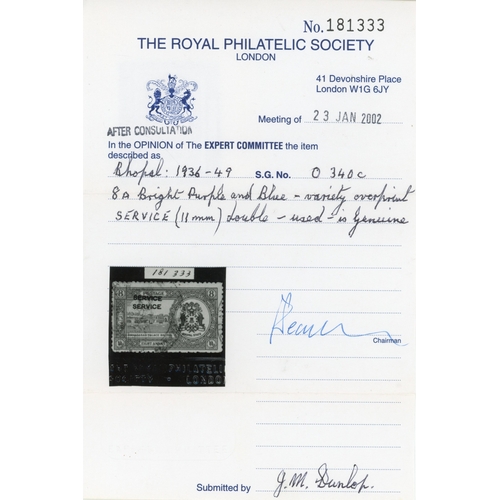 No. 181333
THE ROYAL PHILATELIC SOCIETY
LONDON
41 Devonshire Place
London W1G 6JY
Meeting of 23 JAN 2002
AFTER CONSULTATION
In the OPINION of The EXPERT COMMITTEE the item
described as
Bhopal: 1936-49 S.G. No. O 340c
8A Bright Purple and Blue - variety overprint
SERVICE (11mm) double - used - is Genuine
181 333
SERVICE
SERVICE
PHILATELI
LONDON
Chairman
Submitted by J.M. Dunlop.